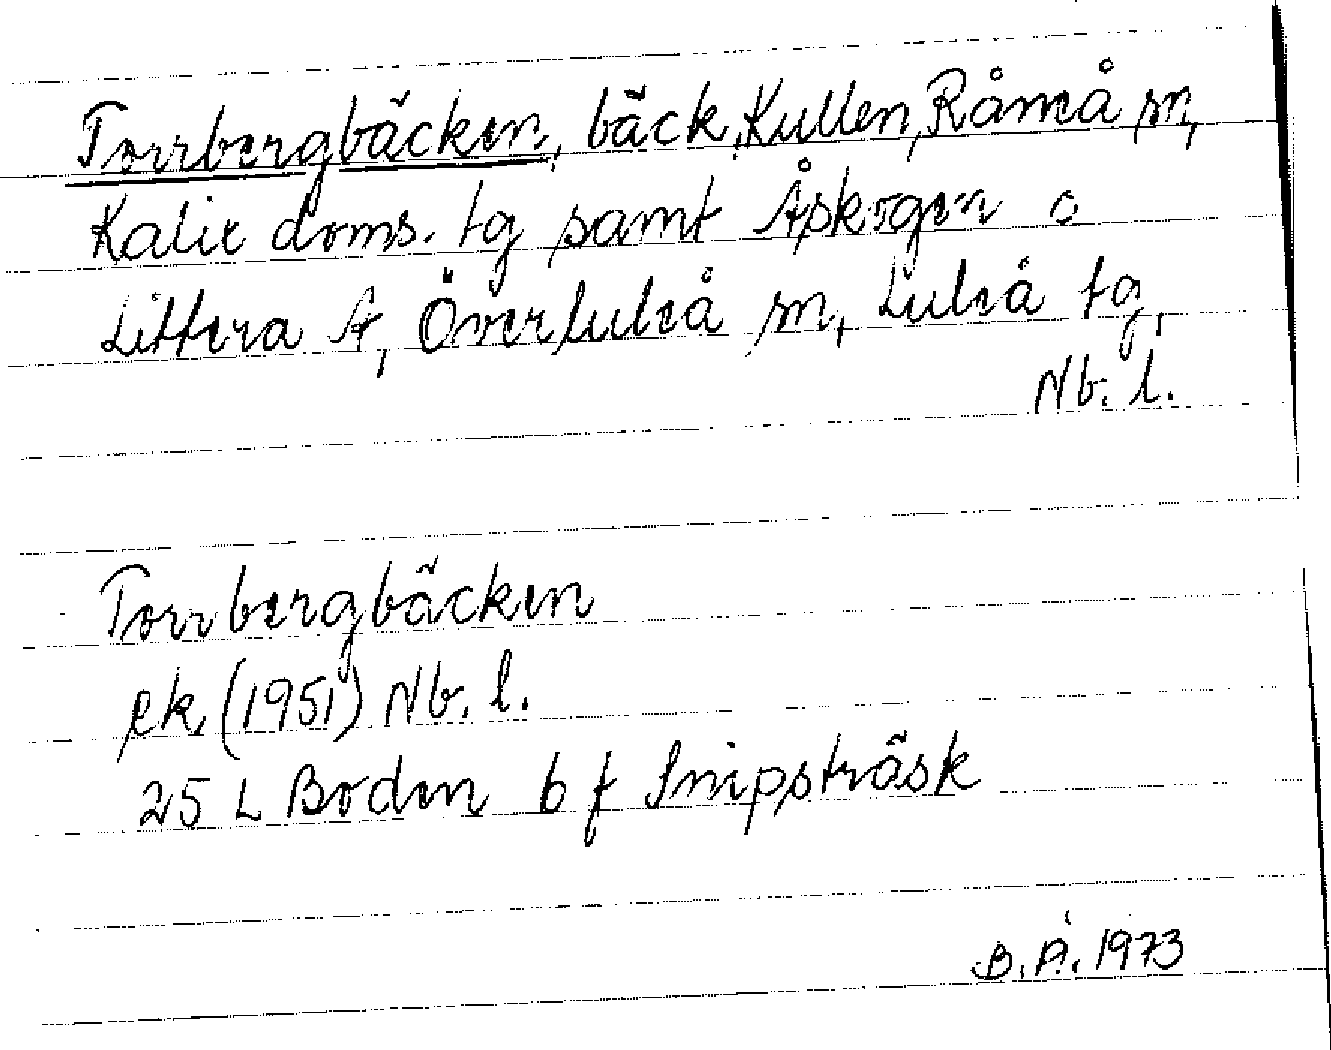 Torrbergbäcken, bäck, Kullen, Råneå sn,
Kalix doms. tg samt Åskogen o
Littera A, Överluleå sn, Luleå tg,
Nb. l.
Torrbergbäcken
ek. (1951) Nb. l.
25 L Boden 6 f Snipsträsk
B. Å. 1973